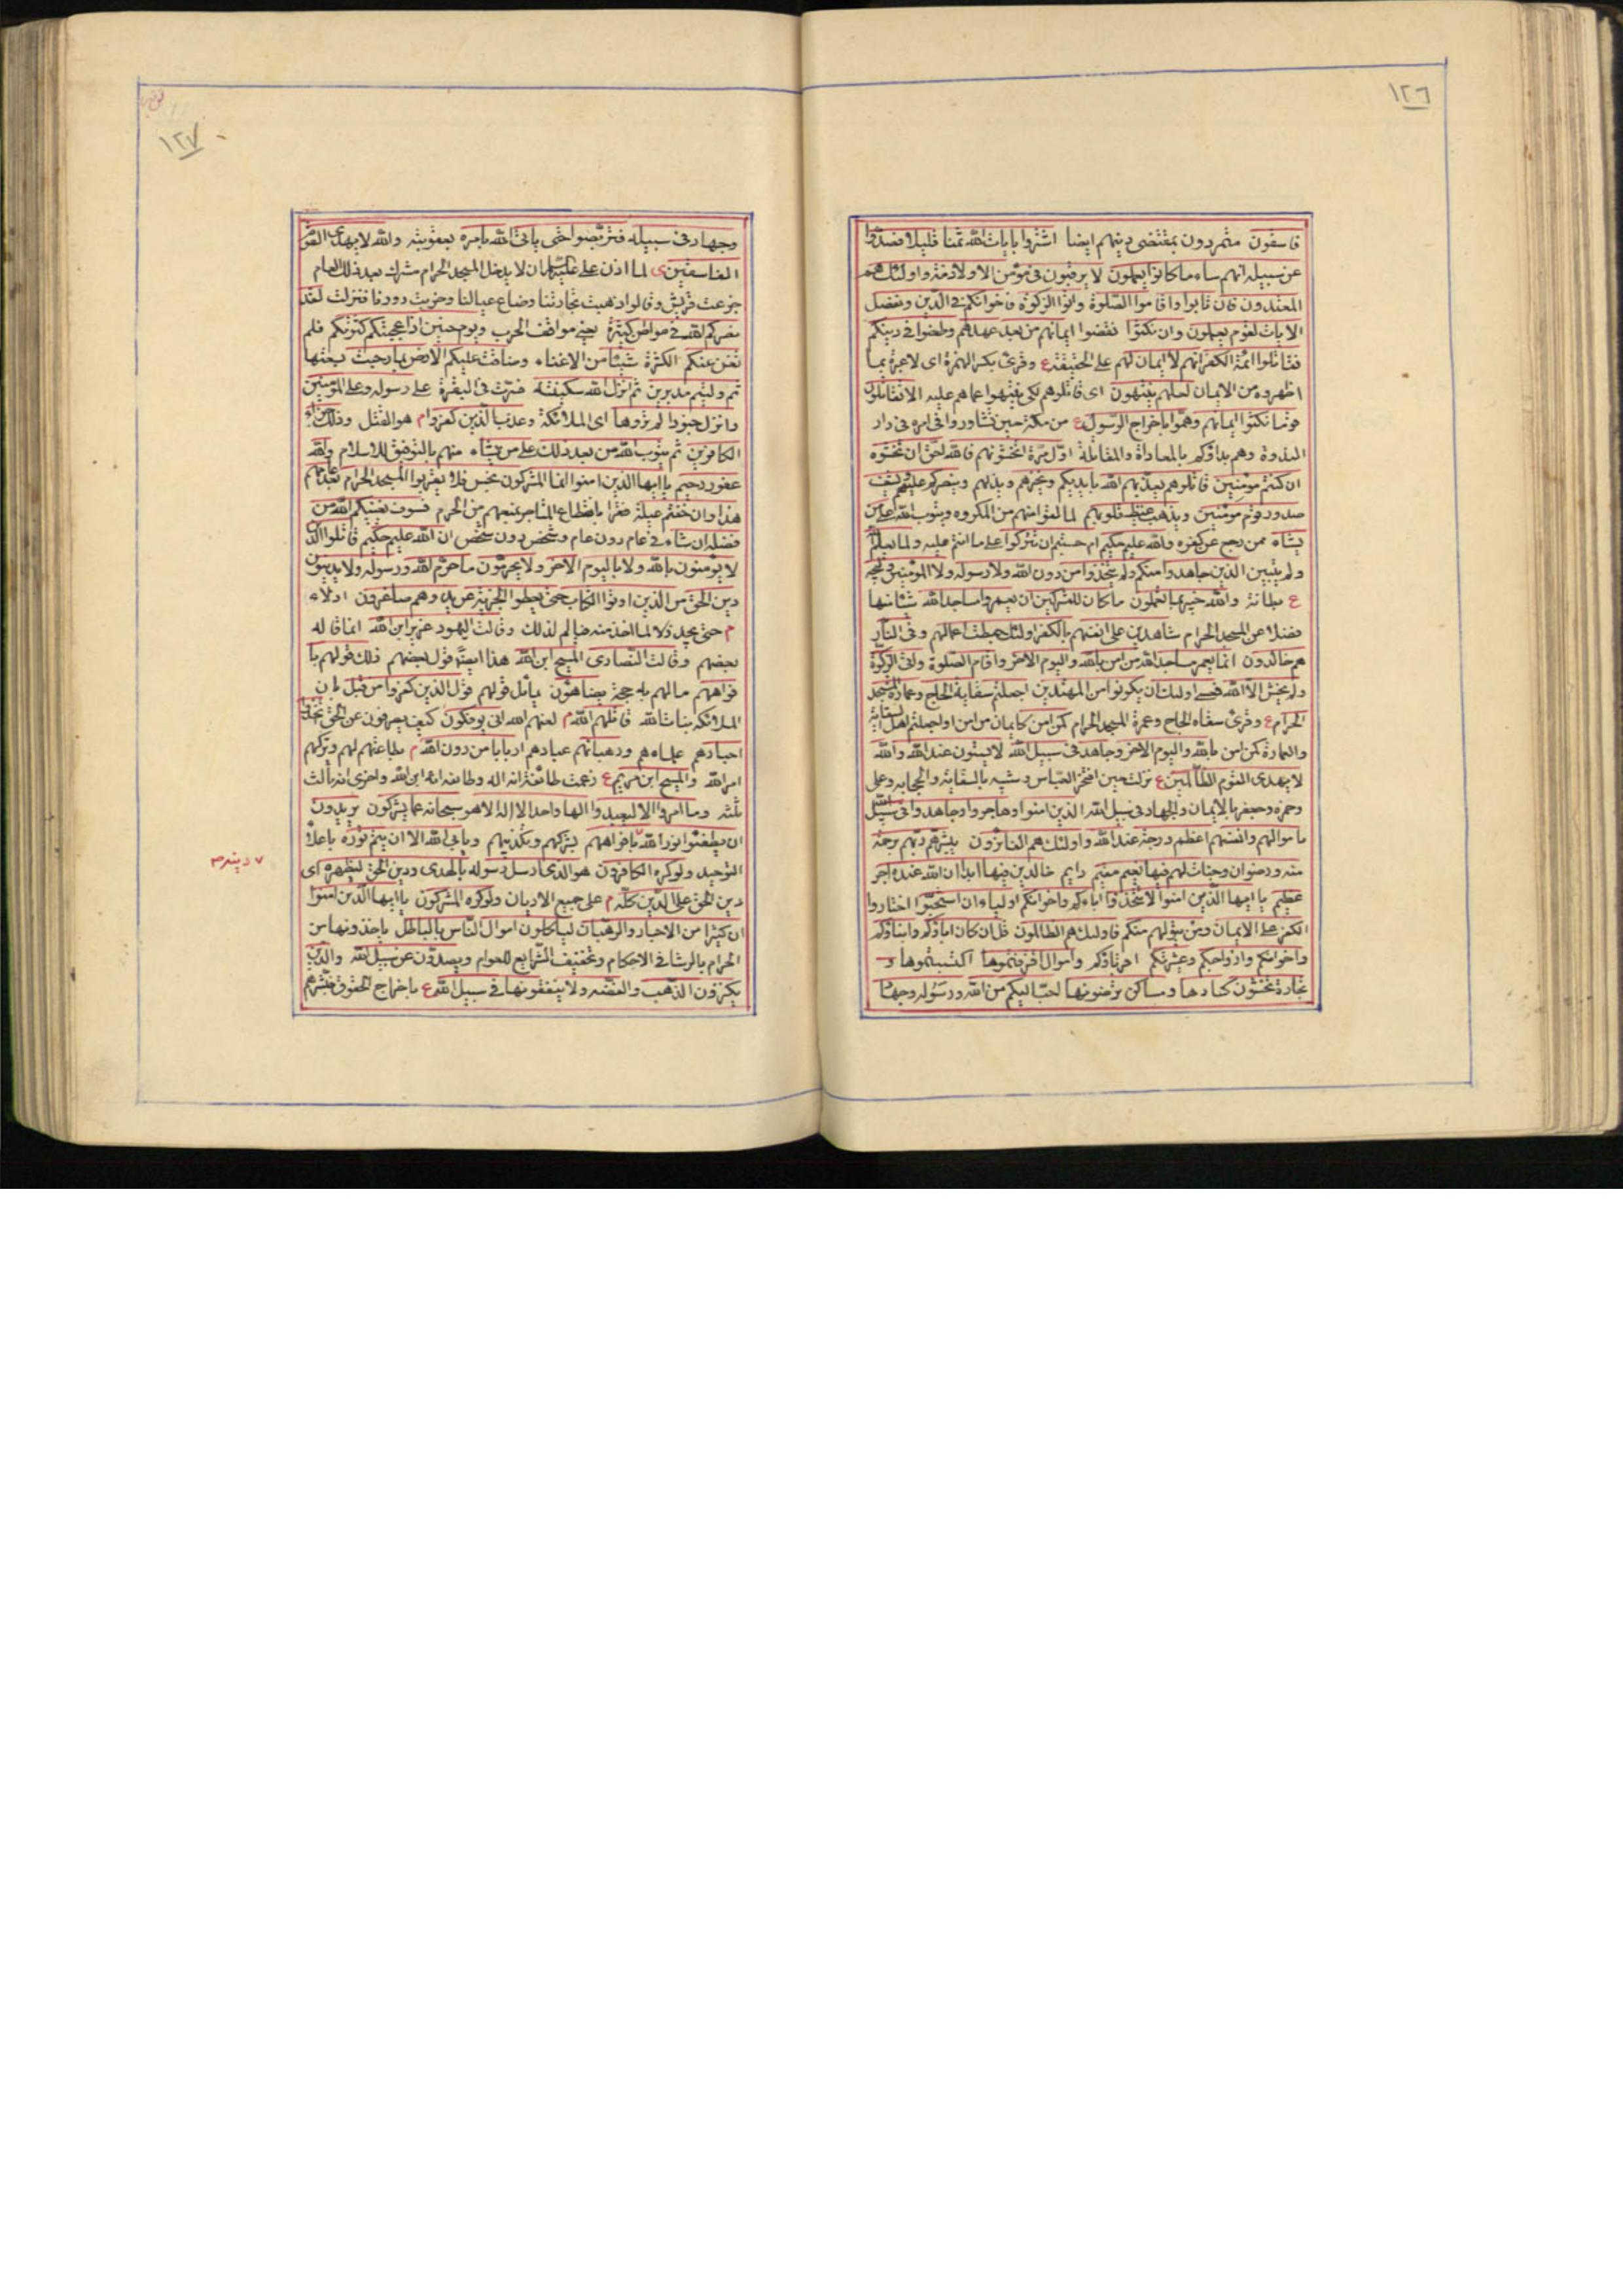 ١٢٦
فاسقون متمردون بمقتضى دينهم ايضا اشتروا بايات الله ثمنا قليلا فصدوا
عن سبيله انهم ساء ما كانوا يعملون لا يرقبون في مؤمن الا ولا ذمة واولئك هم
المعتدون فان تابوا واقاموا الصلوة واتوا الزكوة فاخوانكم في الدين ونفصل
الايات لقوم يعلمون وان نكثوا نقضوا ايمانهم من بعد عهدهم وطعنوا في دينكم
فقاتلوا ائمة الكفر انهم لا ايمان لهم على الحقيقة ع وقرئ بكسر الهمزة اى لا عبرة بما
اظهروه من الايمان لعلهم ينتهون اى قاتلوهم لكى ينتهوا عما هم عليه الا تقاتلون
قوما نكثوا ايمانهم وهموا باخراج الرسول ع من مكة حين تشاوروا في امره في دار
الندوة وهم بداؤكم بالمعاداة والمقاتلة اول مرة اتخشونهم فالله احق ان تخشوه
ان كنتم مؤمنين قاتلوهم يعذبهم الله بايديكم ويخزهم ويذلهم وينصركم عليهم ويشف
صدور قوم مؤمنين ويذهب غيظ قلوبهم لما لقوا منهم من المكروه ويتوب الله على من
يشاء ممن رجع عن كفره والله عليم حكيم ام حسبتم ان تتركوا على ما انتم عليه ولما يعلم الله
ولم يتبين الذين جاهدوا منكم ولم يتخذوا من دون الله ولا رسوله ولا المؤمنين وليجة
ع بطانة والله خبير بما تعملون ما كان للمشركين ان يعمروا مساجد الله شيئا منها
فضلا عن المسجد الحرام شاهدين على انفسهم بالكفر اولئك حبطت اعمالهم وفي النار
هم خالدون انما يعمر مساجد الله من امن بالله واليوم الاخر واقام الصلوة واتى الزكوة
ولم يخش الا الله فعسى اولئك ان يكونوا من المهتدين اجعلتم سقاية الحاج وعمارة المسجد
الحرام ع وقرئ سقاة الحاج وعمرة المسجد الحرام كمن امن كايمان من امن او اجعلتم اهل السقاية
والعمارة كمن امن بالله واليوم الاخر وجاهد في سبيل الله لا يستوون عند الله والله
لا يهدى القوم الظالمين ع نزلت حين افتخر العباس وشيبه بالسقاية والحجابه وعلى
وحمزه وجعفر بالايمان والجهاد في سبيل الله الذين امنوا وهاجروا وجاهدوا في سبيل الله
باموالهم وانفسهم اعظم درجة عند الله واولئك هم الفائزون يبشرهم ربهم برحمة
منه ورضوان وجنات لهم فيها نعيم مقيم دايم خالدين فيها ابدا ان الله عنده اجر
عظيم يا ايها الذين امنوا لا تتخذوا اباءكم واخوانكم اولياء ان استحبوا اختاروا
الكفر على الايمان ومن يتولهم منكم فاولئك هم الظالمون قل ان كان اباؤكم وابناؤكم
واخوانكم وازواجكم وعشيرتكم اقرباؤكم واموال اقترفتموها اكتسبتموها و
تجارة تخشون كسادها ومساكن ترضونها احب اليكم من الله ورسوله وجهاد
١٢٧
وجهاد في سبيله فتربصوا حتى ياتى الله بامره بعقوبته والله لا يهدى القوم
الفاسقين ى لما اذن على ان لا يدخل المسجد الحرام مشرك بعد ذلك العام
جزعت قريش وقالوا ذهبت تجارتنا وضاع عيالنا وخربت دورنا فنزلت لقد
نصركم الله في مواطن كثيرة يعنى مواقف الحرب ويوم حنين اذ اعجبتكم كثرتكم فلم
تغن عنكم الكثرة شيئا من الاغناء وضاقت عليكم الارض بما رحبت بسعتها
ثم وليتم مدبرين ثم انزل الله سكينته على رسوله وعلى المؤمنين
وانزل جنودا لم تروها اى الملائكة وعذب الذين كفروا م هو القتل وذلك جزاء
الكافرين ثم يتوب الله من بعد ذلك على من يشاء منهم بالتوفيق للاسلام والله
غفور رحيم يا ايها الذين امنوا انما المشركون نجس فلا يقربوا المسجد الحرام بعد عامهم
هذا وان خفتم عيلة فقرا بانقطاع المتاجر بمنعهم من الحرم فسوف يغنيكم الله من
فضله ان شاء في عام دون عام وشخص دون شخص ان الله عليم حكيم قاتلوا الذين
لا يؤمنون بالله ولا باليوم الاخر ولا يحرمون ما حرم الله ورسوله ولا يدينون
دين الحق من الذين اوتوا الكتاب حتى يعطوا الجزية عن يد وهم صاغرون اذلاء
م حتى يجد ذلا لما اخذ منه فيالم لذلك وقالت اليهود عزير ابن الله انما قاله
بعضهم وقالت النصارى المسيح ابن الله هذا ايضا قول بعضهم ذلك قولهم با
فواههم ما لهم به حجة يضاهؤن يماثل قولهم قول الذين كفروا من قبل بان
الملائكه بنات الله قاتلهم الله م لعنهم الله انى يؤفكون كيف يصرفون عن الحق اتخذوا
احبارهم علماءهم ورهبانهم عبادهم اربابا من دون الله م بطاعتهم لهم وتركهم
امر الله والمسيح ابن مريم ع زعمت طائفة انه اله وطائفه انه ابن الله واخرى انه ثالث
ثلثه وما امروا الا ليعبدوا الها واحدا لا اله الا هو سبحانه عما يشركون يريدون
ان يطفئوا نور الله بافواههم بشركهم وتكذيبهم ويابى الله الا ان يتم نوره باعلاء
التوحيد ولو كره الكافرون هو الذى ارسل رسوله بالهدى ودين الحق ليظهره اى
دين الحق على الدين كله م على جميع الاديان ولو كره المشركون يا ايها الذين امنوا
ان كثيرا من الاحبار والرهبان لياكلون اموال الناس بالباطل ياخذونها من
الحرام بالرشا في الاحكام وتخفيف الشرايع للعوام ويصدون عن سبيل الله والذين
يكنزون الذهب والفضه ولا ينفقونها في سبيل الله ع باخراج الحقوق فبشرهم